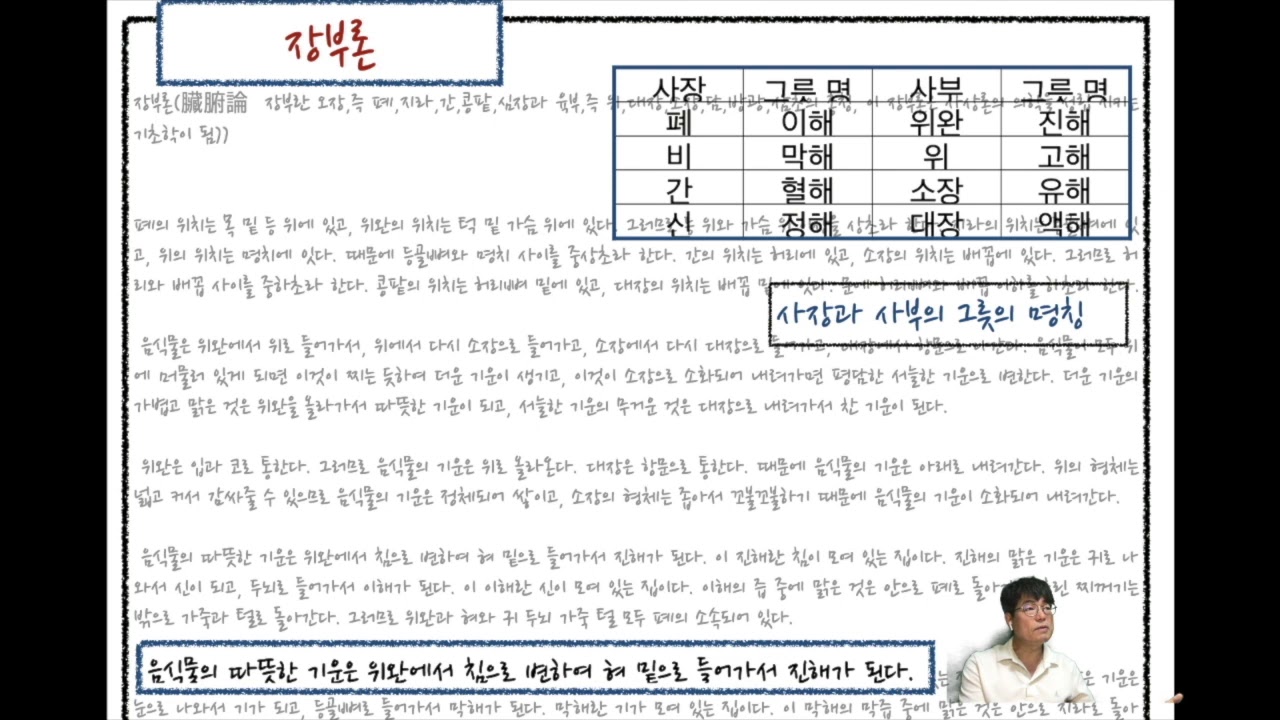 장부론
장부론(臟腑論 장부란 오장,즉 폐,지라,간,콩팥,심장과 육부,즉 위,대장,소장,담,방광,삼초의 총칭, 이 장부론은 사상론의 의학을 성립 시키는
기초학이 됨))
사장 그릇 명 사부 그릇 명
폐 이해 위완 진해
비 막해 위 고해
간 혈해 소장 유해
신 정해 대장 액해
폐의 위치는 목 밑 등 위에 있고, 위완의 위치는 턱 밑 가슴 위에 있다. 그러므로 등 위와 가슴 위 를 상초라 한 지라의 위치는 에 있
고, 위의 위치는 명치에 있다. 때문에 등골뼈와 명치 사이를 중상초라 한다. 간의 위치는 허리에 있고, 소장의 위치는 배꼽에 있다. 그러므로 허
리와 배꼽 사이를 중하초라 한다. 콩팥의 위치는 허리뼈 밑에 있고, 대장의 위치는 배꼽 밑에 있다. 문에 허리뼈와 배꼽 이하를 하초라 한다.
사장과 사부의 그릇의 명칭
음식물은 위완에서 위로 들어가서, 위에서 다시 소장으로 들어가고, 소장에서 다시 대장으로 들어가고, 대장에서 항문으로 나간다. 음식물이 모두 위
에 머물러 있게 되면 이것이 찌는 듯하여 더운 기운이 생기고, 이것이 소장으로 소화되어 내려가면 평담한 서늘한 기운으로 변한다. 더운 기운의
가볍고 맑은 것은 위완을 올라가서 따뜻한 기운이 되고, 서늘한 기운의 무거운 것은 대장으로 내려가서 찬 기운이 된다.
위완은 입과 코로 통한다. 그러므로 음식물의 기운은 위로 올라온다. 대장은 항문으로 통한다. 때문에 음식물의 기운은 아래로 내려간다. 위의 형체는
넓고 커서 감싸줄 수 있으므로 음식물의 기운은 정체되어 쌓이고, 소장의 형체는 좁아서 꼬불꼬불하기 때문에 음식물의 기운이 소화되어 내려간다.
음식물의 따뜻한 기운은 위완에서 침으로 변하여 혀 밑으로 들어가서 진해가 된다. 이 진해란 침이 모여 있는 집이다. 진해의 맑은 기운은 귀로 나
와서 신이 되고, 두뇌로 들어가서 이해가 된다. 이 이해란 신이 모여 있는 집이다. 이해의 즙 중에 맑은 것은 안으로 폐로 돌아 린 찌꺼기는
밖으로 가죽과 털로 돌아간다. 그러므로 위완과 혀와 귀 두뇌 가죽 털 모두 폐의 소속되어 있다.
음식물의 따뜻한 기운은 위완에서 침으로 변하여 혀 밑으로 들어가서 진해가 된다.
은 기운은
눈으로 나와서 기가 되고, 등골뼈로 들어가서 막해가 된다. 막해란 기가 모여 있는 집이다. 이 막해의 막즙 중에 맑은 것은 안으로 지라로 돌아